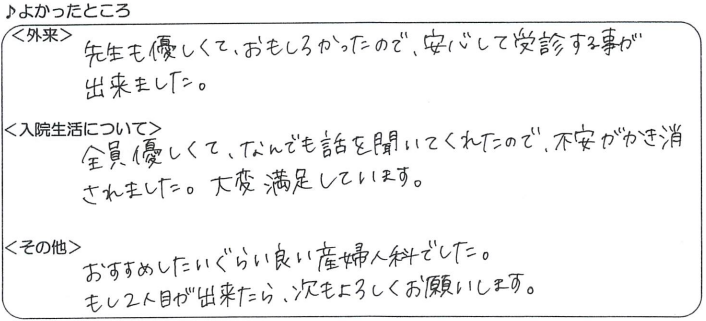 ♪よかったところ
＜外来＞
先生も優しくて、おもしろかったので、安心して受診する事が
出来ました。
＜入院生活について＞
全員優しくて、なんでも話を聞いてくれたので、不安がかき消
されました。大変満足しています。
＜その他＞
おすすめしたいぐらい良い産婦人科でした。
もし2人目が出来たら、次もよろしくお願いします。